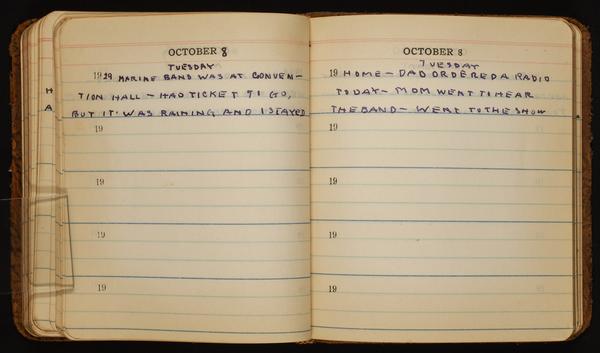 OCTOBER 8
TUESDAY
1929 MARINE BAND WAS AT CONVEN-
TION HALL - HAD TICKET TO GO,
BUT IT WAS RAINING AND I STAYED
19
19
19
19
H
A
OCTOBER 8
TUESDAY
19 HOME - DAD ORDERED A RADIO
TODAY - MOM WENT TO HEAR
THE BAND - WENT TO THE SHOW
19
19
19
19